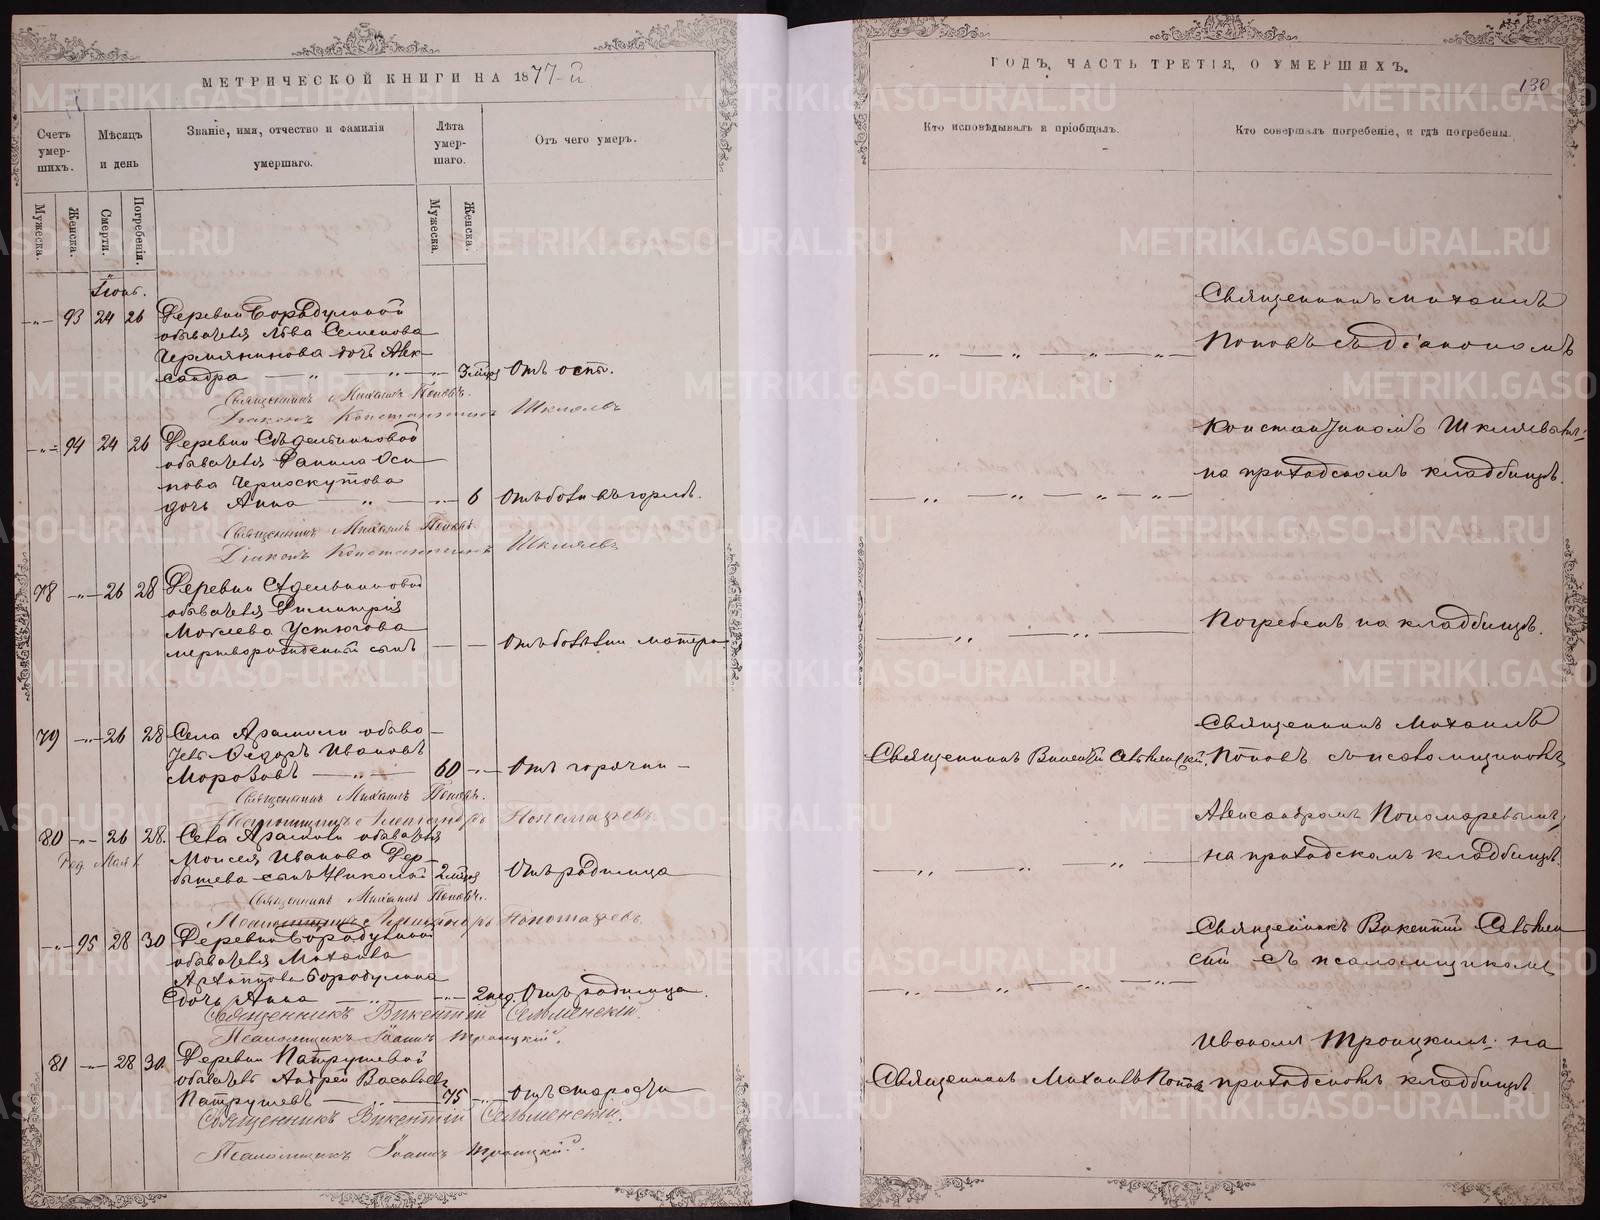 МЕТРИЧЕСКОЙ КНИГИ НА 1877-й
Счетъ умер-шихъ.
Мѣсяцъ и день
Званіе, имя, отчество и фамилія умершаго.
Лѣта умер-шаго.
Отъ чего умеръ.
Мужеска.
Женска.
Смерти.
Погребенія.
Мужеска.
Женска.
Іюнь.
93 24 26 Деревни Бородулиной
обывателя Льва Семенова
Чермянинова дочь Алек-
сандра 3 мѣся Отъ оспы.
Священникъ Михаилъ Поповъ.
Діаконъ Константинъ Шкляевъ
94 24 26 Деревни Сѣдельниковой
обывателя Данила Оси
пова Черноскутова
дочь Анна 6 Отъ боли въ горлѣ.
Священникъ Михаилъ Поповъ.
Діаконъ Константинъ Шкляевъ
78 26 28 Деревни Сѣдельниковой
обывателя Димитрія
Устюгова
мертворожденный сынъ Отъ болѣзни матери
79 26 28 Села Арамили обыва-
тель Ѳедоръ Ивановъ
Морозовъ 60 Отъ горячки
Священникъ Михаилъ Поповъ.
Псаломщикъ Александръ Пономаревъ
80 26 28. Села Арамили обывателя
Род. Мая
Моисея Иванова Дер-
бышева сынъ Николай 2 мѣся Отъ родимца
Священникъ Михаилъ Поповъ.
Псаломщикъ Александръ Пономаревъ
95 28 30 Деревни Бородулиной
обывателя Михаила
Архиппова Бородулина
дочь Анна 2 нед. Отъ родимца.
Священникъ Викентій Сельменскій.
Псаломщикъ Іоаннъ Троицкій.
81 28 30 Деревни Патрушевой
обыватель Андрей Васильевъ
Патрушевъ 75 Отъ старости
Священникъ Викентій Сельменскій.
Псаломщикъ Іоаннъ Троицкій.
ГОДЪ, ЧАСТЬ ТРЕТІЯ, О УМЕРШИХЪ.
130
Кто исповѣдывалъ и пріобщалъ.
Кто совершалъ погребеніе, и гдѣ погребены.
Священникъ Михаилъ
Поповъ съ діакономъ
Константиномъ Шкляевымъ
на приходскомъ кладбищѣ.
Погребенъ на кладбищѣ.
Священникъ Михаилъ
Священникъ Викентій Сельменскій. Поповъ съ псаломщикомъ
Александромъ Пономаревымъ
на приходскомъ кладбищѣ.
Священникъ Викентій Сельмен
скій съ псаломщикомъ
Иваномъ Троицкимъ на
Священникъ Михаилъ Поповъ приходскомъ кладбищѣ
METRIKI.GASO-URAL.RU